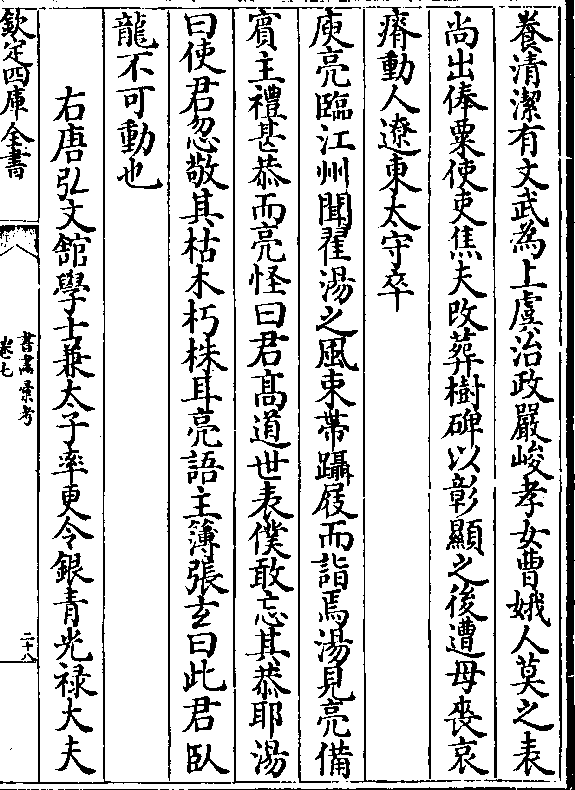 養清潔有文武為上虞治政嚴峻孝女曹娥人莫之表
尚出俸粟使吏焦夫改葬樹碑以彰顯之後遭母喪哀
瘠動人遼東太守卒
庾亮臨江州聞翟湯之風束帶躡屐而詣焉湯見亮備
賓主禮甚恭而亮怪曰君髙道世表僕敢忘其恭耶湯
曰使君忽敬其枯木朽株耳亮語主簿張玄曰此君臥
龍不可動也
右唐弘文館學士兼太子率更令銀青光禄大夫
欽定四庫全書
書畫彚考
卷七
二十八